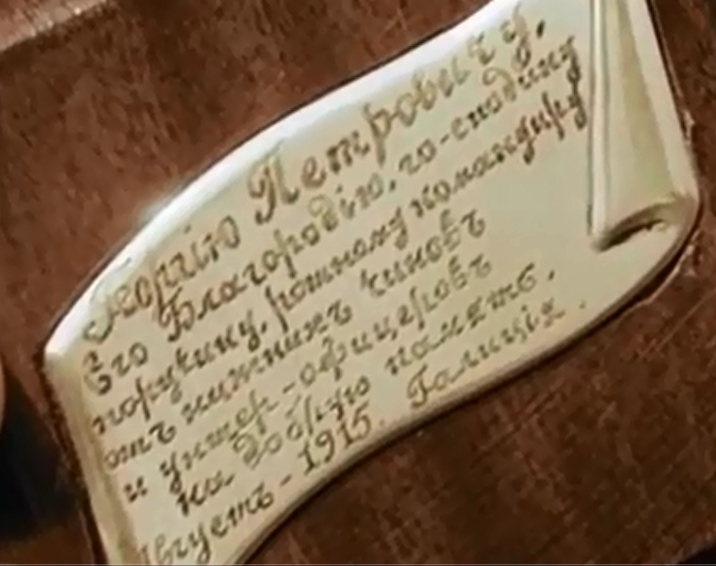 Георгію Петровичу,
Его Благородію, го-сподину
поручику, ротному командиру
отъ нижнихъ чиновъ
и унтер-офицеровъ
на добрую память.
Августъ-1915. Галиція.